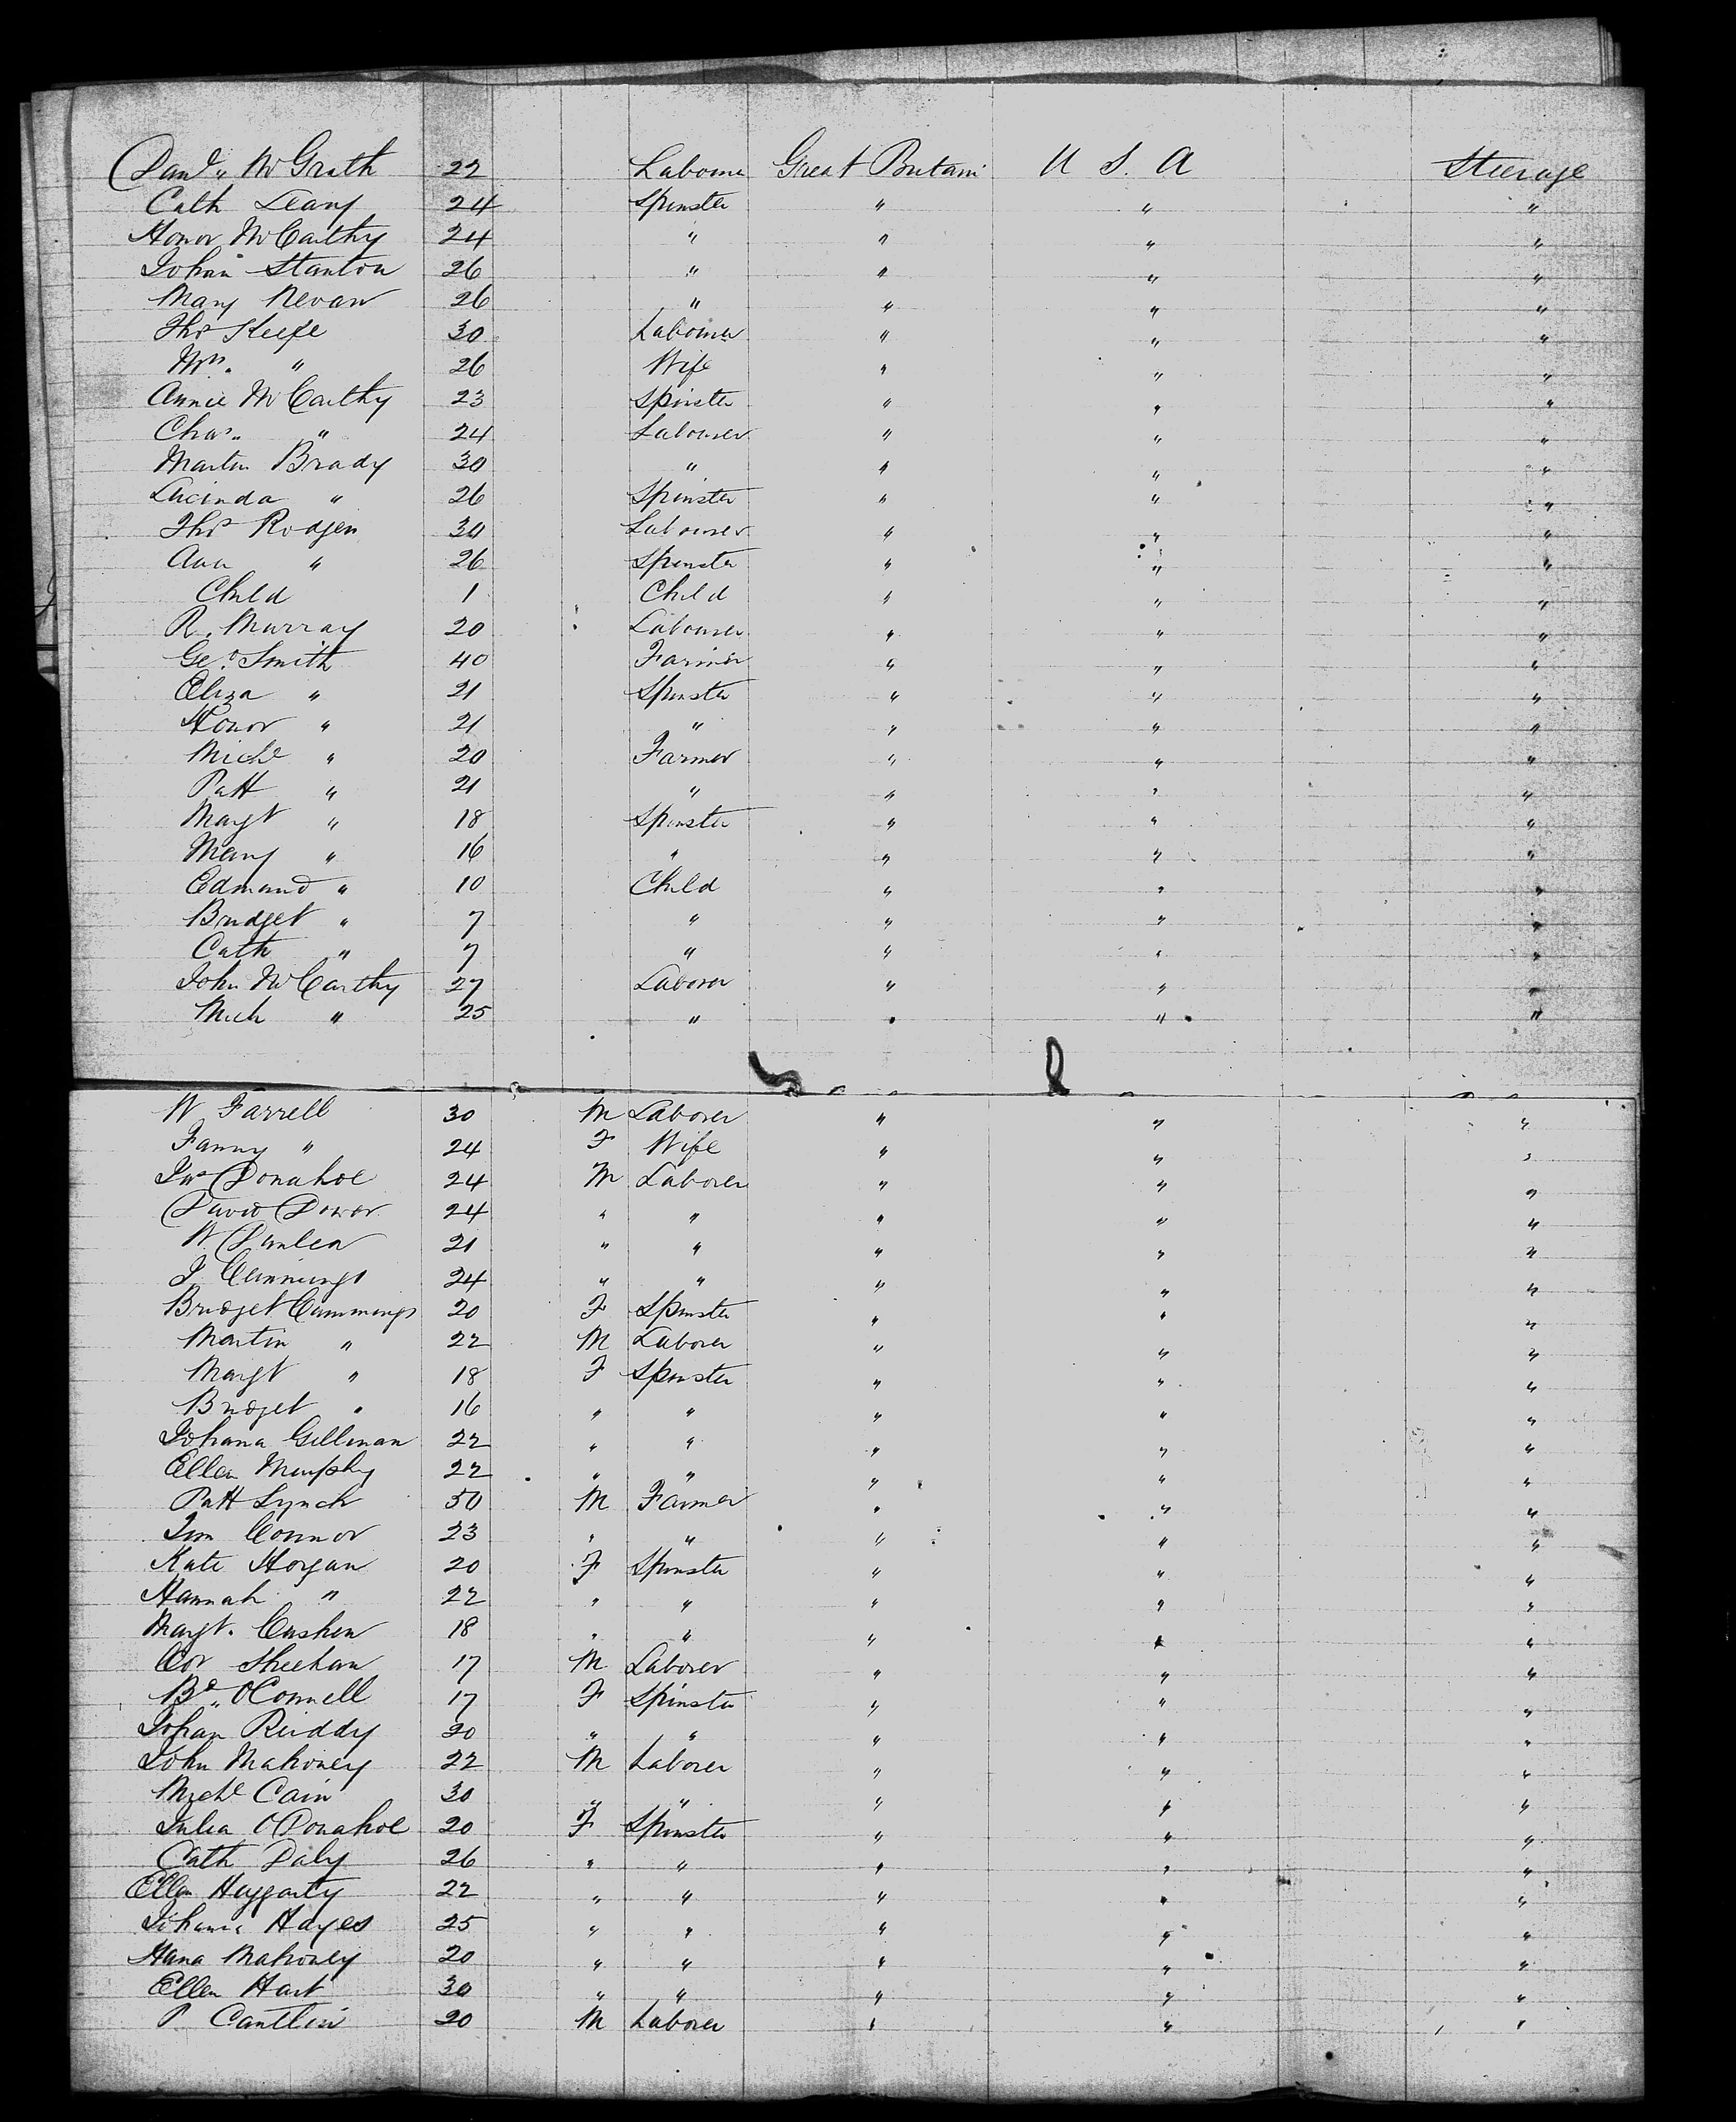 Danl. McGrath 22 Labourer Great Britain U S. A Steerage
Cath Leary 24 Spinster " " "
Honor McCarthy 24 " " " "
Johan Stanton 26 " " " "
Mary Nevan 26 " " " "
Thos Keefe 30 Labourer " " "
Mrs. " 26 Wife " " "
Annie McCarthy 23 Spinster " " "
Chas. " 24 Labourer " " "
Martin Brady 30 " " " "
Lucinda " 26 Spinster " " "
Thos Rodgers 30 Labourer " " "
Ann " 26 Spinster " " "
Child 1 Child " " "
R. Murray 20 Labourer " " "
Geo. Smith 40 Farmer " " "
Eliza " 21 Spinster " " "
Honor " 21 " " " "
Michl " 20 Farmer " " "
Patt " 21 " " " "
Margt " 18 Spinster " " "
Mary " 16 " " " "
Edmand " 10 Child " " "
Bridget " 7 " " " "
Cath " 7 " " " "
John McCarthy 27 Laborer " " "
Mich " 25 " " " "
W Farrell 30 M Laborer " " "
Fanny " 24 F Wife " " "
Jas Donahoe 24 M Laborer " " "
David Dower 24 " " " " "
W. 21 " " " " "
J. Cummings 24 " " " " "
Bridget Cummings 20 F Spinster " " "
Martin " 22 M Laborer " " "
Margt " 18 F Spinster " " "
Bridget " 16 " " " " "
Johana Gillman 22 " " " " "
Ellen Murphy 22 " " " " "
Patt Lynch 50 M Farmer " " "
Jim Connor 23 " " " " "
Kate Horgan 20 F Spinster " " "
Hannah " 22 " " " " "
Margt. Cashen 18 " " " " "
Cor Sheehan 17 M Laborer " " "
Bd. OConnell 17 F Spinster " " "
Johan Ruddy 20 " " " " "
John Mahoney 22 M Laborer " " "
Michl Cain 30 " " " " "
Julia ODonahoe 20 F Spinster " " "
Cath Daly 26 " " " " "
Ellen Haggarty 22 " " " " "
Johana Hayes 25 " " " " "
Hana Mahoney 20 " " " " "
Ellen Hart 30 " " " " "
P Cantlin 20 M Laborer " " "